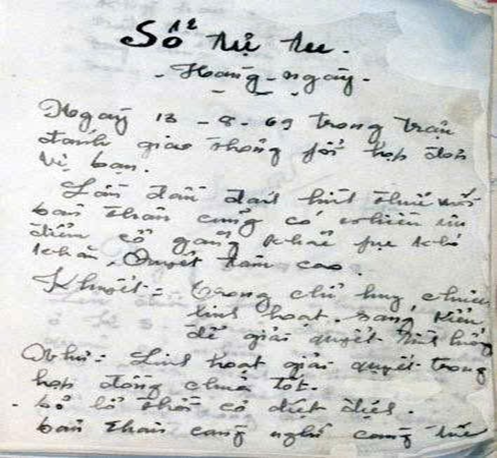 Sổ tự tu.
- Hàng ngày -
Ngày 13 - 8 - 69 trong trận
đánh giao thông phối hợp đơn
vị bạn.
Lần đầu đánh
bản thân cũng có nhiều ưu
điểm cố gắng khắc phục khó
khăn, Quyết tâm cao.
Khuyết: trong chỉ huy, chưa
linh hoạt, sáng kiến
để giải quyết tình huống
Như: Linh hoạt giải quyết trong
hợp đồng chưa tốt.
- bỏ lỡ thời cơ diệt địch.
bản thân càng nghĩ càng